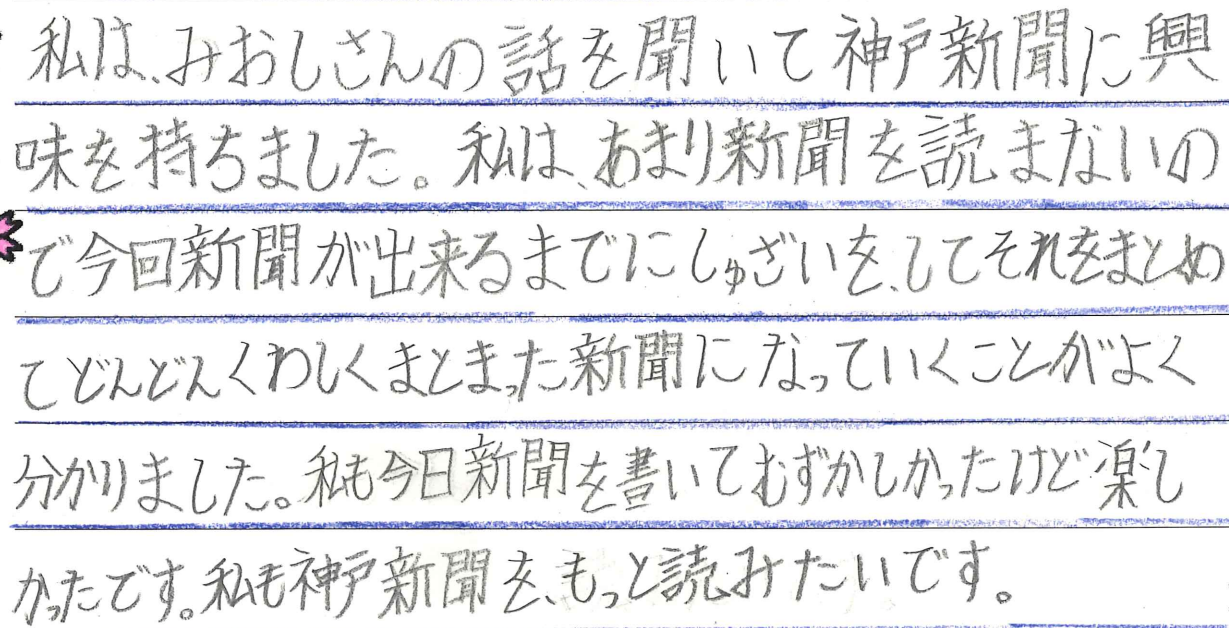 私は、みおしさんの話を聞いて神戸新聞に興
味を持ちました。私は、あまり新聞を読まないの
で今回新聞が出来るまでにしゅざいを、してそれをまとめ
てどんどんくわしくまとまった新聞になっていくことがよく
分かりました。私も今日新聞を書いてむずかしかったけど楽し
かったです。私も神戸新聞を、もっと読みたいです。